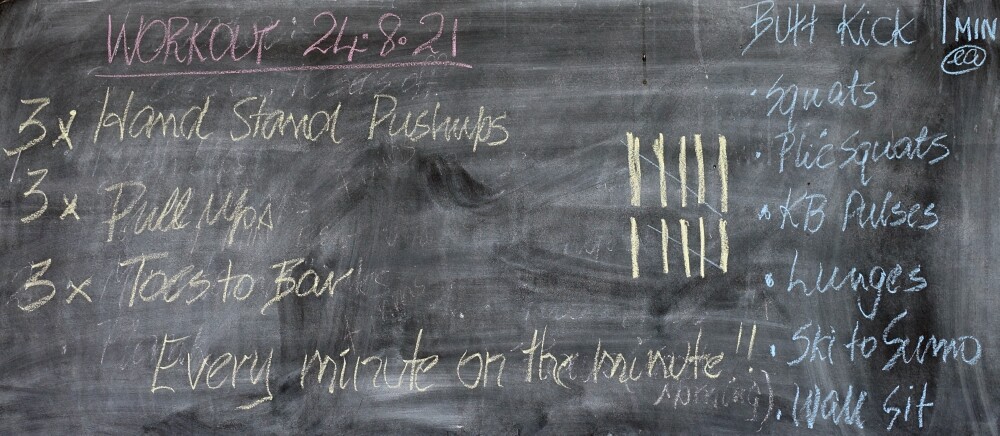 WORKOUT: 24.8.21
3x Hand Stand Pushups
3x Pull Ups
3x Toes to Bar
Every minute on the minute!!
Butt Kick 1 MIN
ea
• Squats
• Plié Squats
• KB Pulses
• Lunges
• Ski to Sumo
• Wall Sit